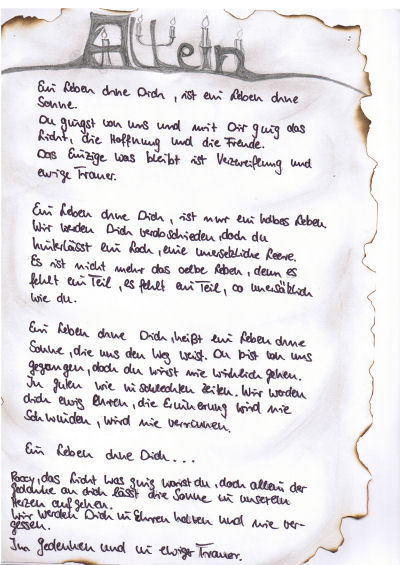 Allein
Ein Leben ohne Dich, ist ein Leben ohne
Sonne.
Du gingst von uns und mit Dir ging das
Licht, die Hoffnung und die Freude.
Das Einzige was bleibt ist Verzweiflung und
ewige Trauer.
Ein Leben ohne Dich, ist nur ein halbes Leben.
Wir werden Dich verabschieden, doch du
hinterlässt ein Loch, eine unersetzliche Leere.
Es ist nicht mehr das selbe Leben, denn es
fehlt ein Teil, es fehlt ein Teil, so unersätzlich
wie du.
Ein Leben ohne Dich, heißt ein Leben ohne
Sonne, die uns den Weg weist. Du bist von uns
gegangen, doch du wirst nie wirklich gehen.
In guten wie in schlechten Zeiten. Wir werden
dich ewig Ehren, die Erinnerung wird nie
Schwinden, wird nie verrinnen.
Ein Leben ohne Dich...
, das Licht was ging warst du, doch allein der
Gedanke an dich lässt die Sonne in unserem
Herzen aufgehen.
Wir werden Dich in Ehren halten und nie ver-
gessen.
Im Gedenken und in ewiger Trauer.